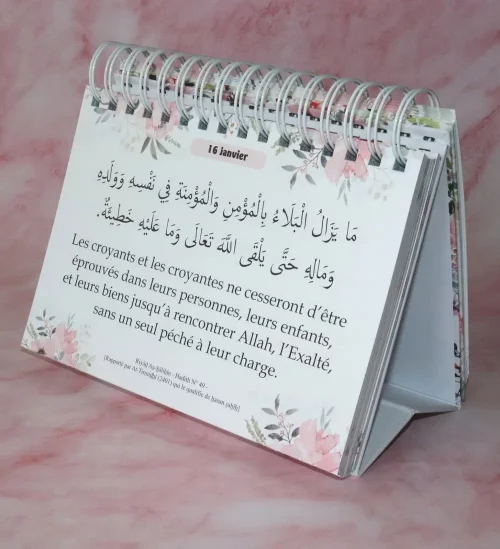 16 janvier
مَا يَزَالُ الْبَلَاءُ بِالْمُؤْمِنِ وَالْمُؤْمِنَةِ فِي نَفْسِهِ وَوَلَدِهِ
وَمَالِهِ حَتَّى يَلْقَى اللَّهَ تَعَالَى وَمَا عَلَيْهِ خَطِيئَةٌ.
Les croyants et les croyantes ne cesseront d’être
éprouvés dans leurs personnes, leurs enfants,
et leurs biens jusqu’à rencontrer Allah, l’Exalté,
sans un seul péché à leur charge.
Riyâd As-Sâlihîn - Hadith N° 49 -
(Rapporté par At-Tirmidhî (2401) qui le qualifie de hasan sahîh)